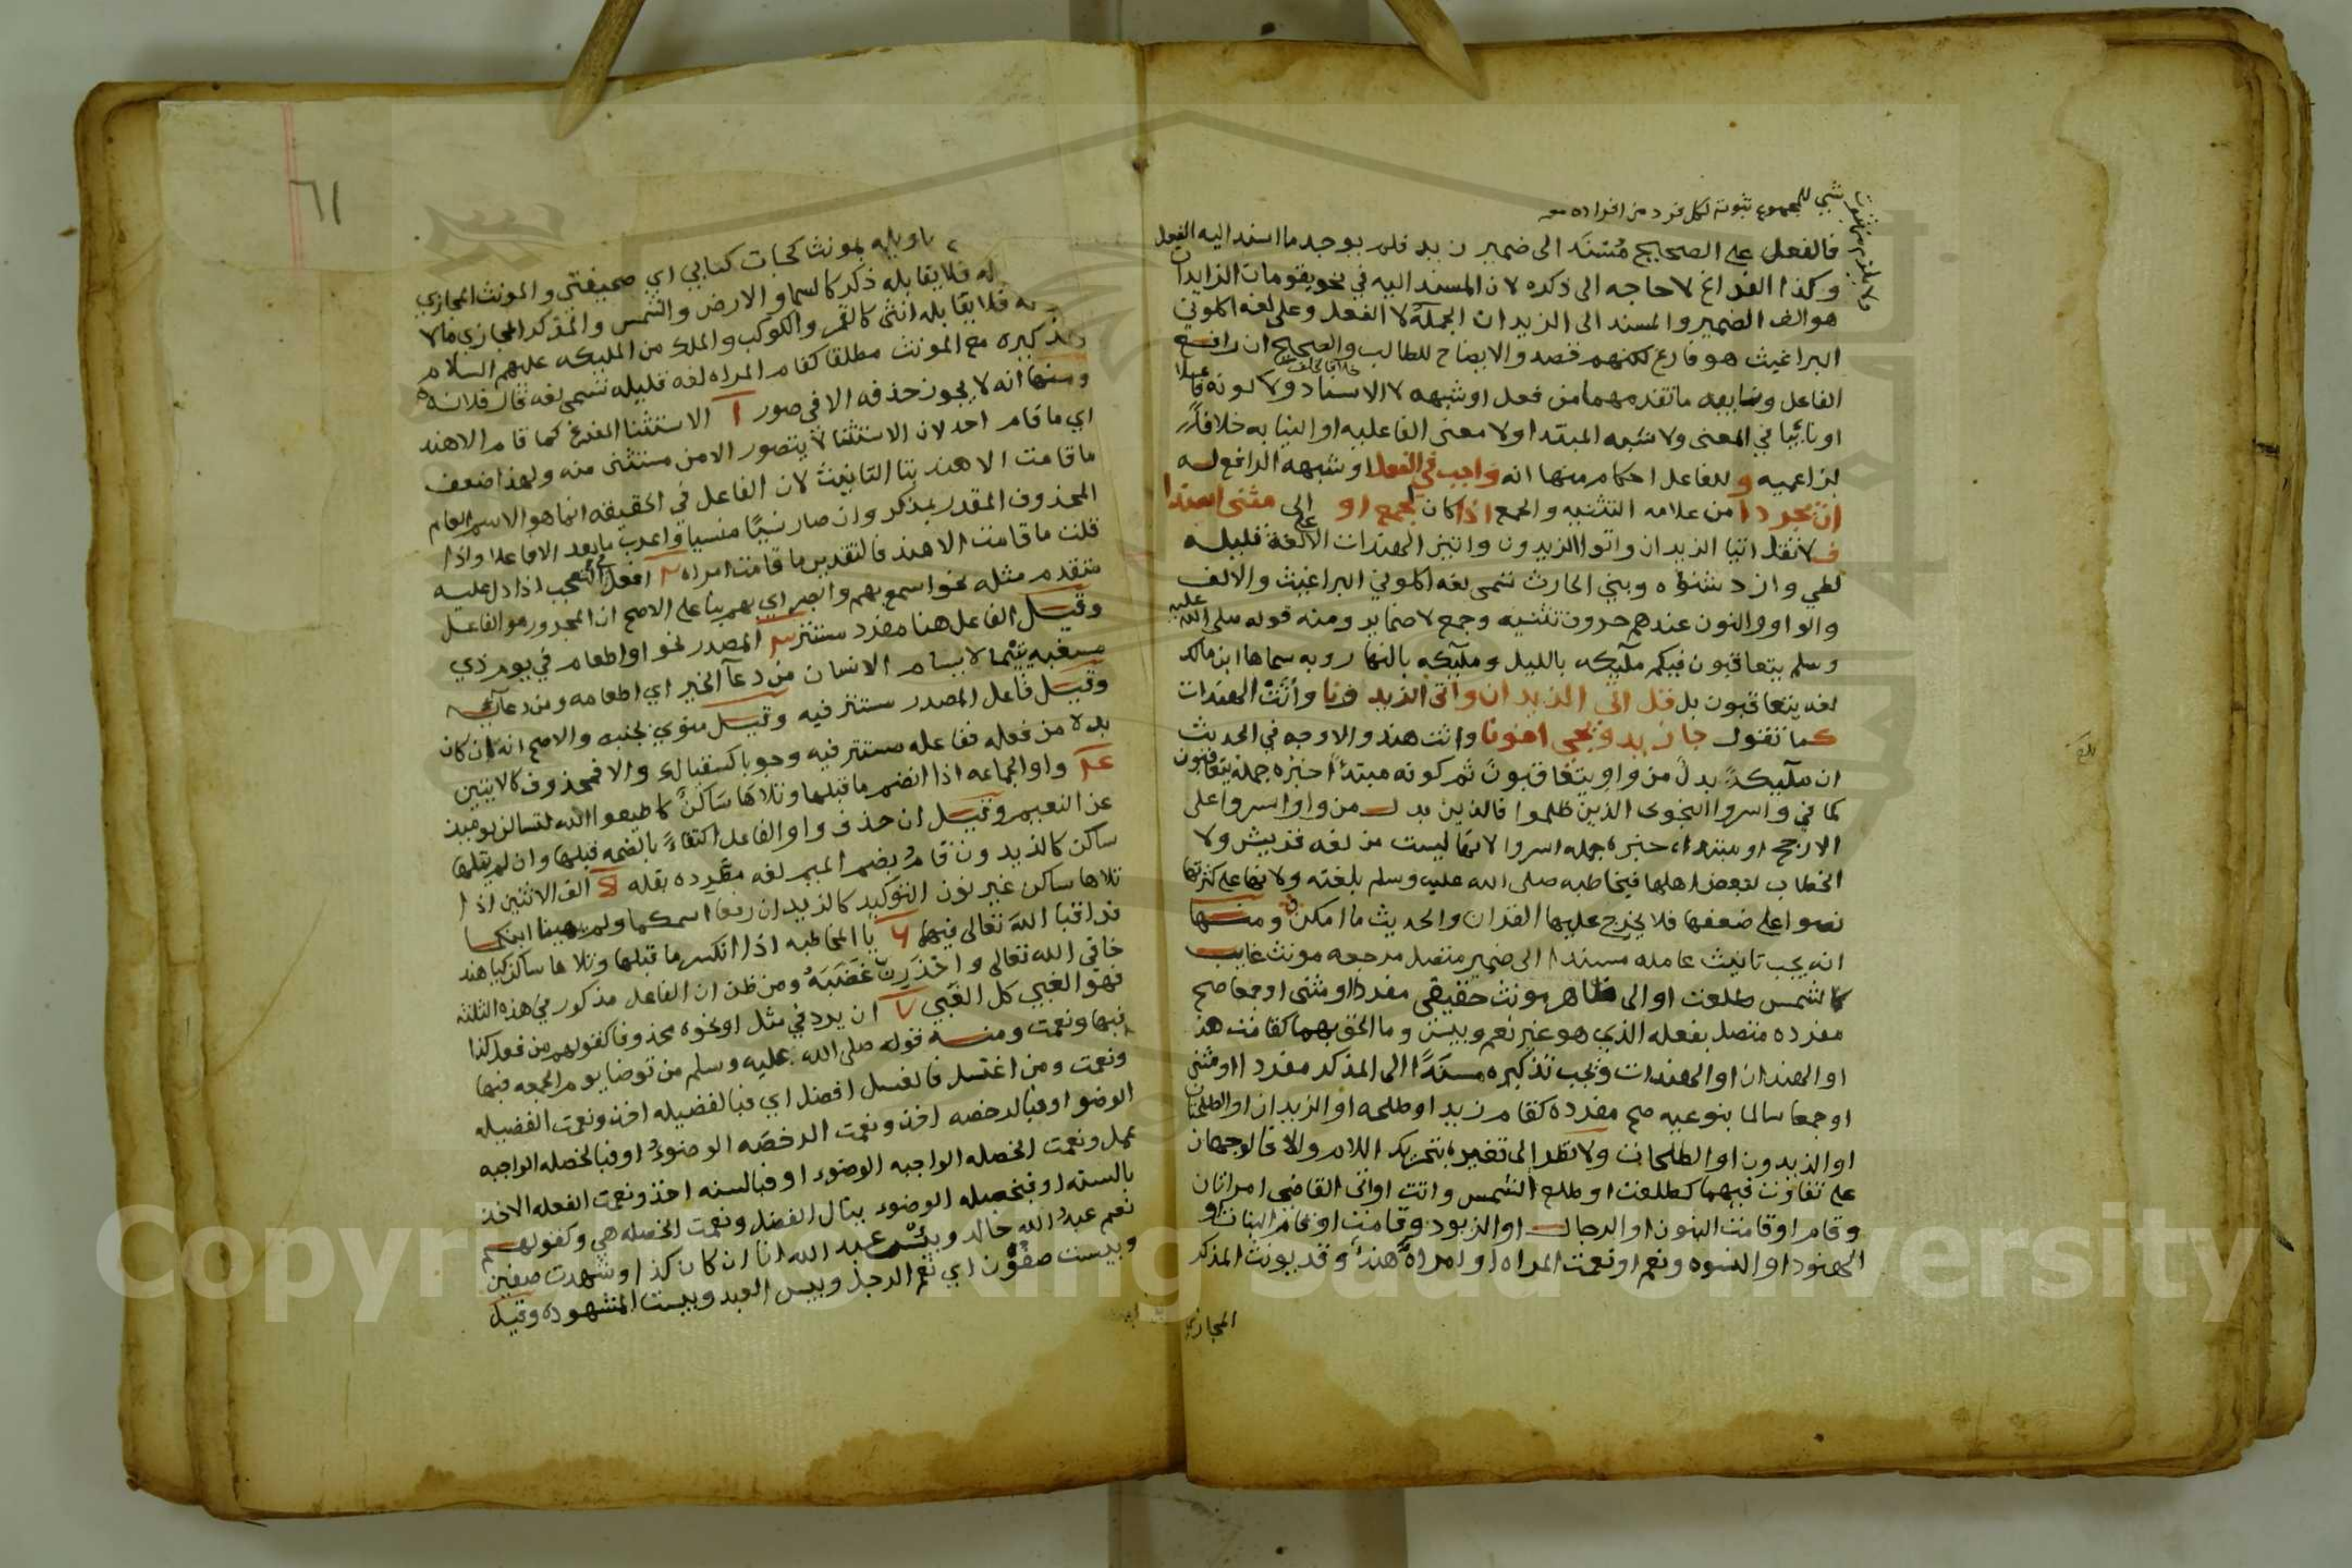 شي للمجموع ثبوته لكل فرد من افراده معه
فالفعل على الصحيح مُسْنَد الى ضمير زيد فلم يوجد ما اسند اليه الفعل
وكذا الفراغ لا حاجه الى ذكره لان المسند اليه في نحو يقومان الزايدان
هو الف الضمير والمسند الى الزيدان الجملة لا الفعل وعلى لغه اكلوني
البراغيث هو فارغ لكنهم قصدوا الايضاح للطالب والصحيح ان رافع
الفاعل ونايبه ما تقدمهما من فعل او شبهه لا الاسناد ولا كونه فاعلا
او نائبا في المعنى ولا شبه المبتدا ولا معنى الفاعليه او النيابه خلافا
لزاعميه وللفاعل احكام منها انه واجب في الفعل او شبهه الرافع له
ان يجردا من علامه التثنيه والجمع اذا كان لجمع او الى مثنى اسندا
فلا تقل اتيا الزيدان واتوا الزيدون واتين الهندات الا على لغة قليله
لطي وازد شنؤه وبني الحارث تسمى لغه اكلوني البراغيث والالف
والواو والنون عندهم حروف تثنيه وجمع لا ضماير ومنه قوله صلى الله عليه
وسلم يتعاقبون فيكم ملآيكه بالليل وملآيكه بالنهار وبه سماها ابن مالك
لغه يتعاقبون بل قل اتى الزيدان واتى الزيدونا وأتَتْ الهندات
كما تقول جا زيد ويجي اخونا واتت هند والاوجه في الحديث
ان ملآيكةً بدلٌ من واو يتعاقبون ثم كونه مبتدأ خبره جمله يتعاقبون
كما في واسروا النجوى الذين ظلموا فالذين بدل من واو اسروا على
الارجح او مبتدا خبره جمله اسروا لانها ليست من لغه قريش ولا
الخطاب لبعض اهلها فيخاطبه صلى الله عليه وسلم بلغته ولانها على كثرتها
نصوا على ضعفها فلا يخرج عليها القران والحديث ما امكن ومنها
انه يجب تانيث عامله مسندا الى ضمير متصل مرجعه مونث غايب
كالشمس طلعت او الى ظاهر مونث حقيقى مفردا او مثنى او جمعا صح
مفرده متصل بفعله الذي هو غير نعم وبيس وما الحق بهما كقامت هند
او الهندان او الهندات ويجب تذكيره مسندًا الى المذكر مفردا او مثنى
او جمعا سالما بنوعيه صح مفرده كقام زيد او طلحه او الزيدان او الطلحتان
او الزيدون او الطلحات ولا نظر الى تغيره بتحريك اللام والا فالوجهان
على تفاوت فيهما كطلعت او طلع الشمس واتت او اتى القاضي امراتان
وقام او قامت البنون او الرجال او الزيود وقامت او قام البنات او
الهنود او النسوه ونعم او نعمت المراه او امراةً هندٌ وقد يونث المذكر
المجازي
٦١
بتاويله بمونث كجات كتابي اي صحيفتي والمونث المجازي
له فلا يقابله ذكر كالسما والارض والشمس والمذكر المجازي ما لا
به فلا يقابله انثى كالقمر والكوكب والملك من المليكه عليهم السلام
تذكيره مع المونث مطلقا كقام المراه لغه قليله تسمى لغه قال فلانه
ومنها انه لا يجوز حذفه الا في صور ١ الاستثنا المفرغ كما قام الا هند
اي ما قام احد لان الاستثنا لا يتصور الا من مستثنى منه ولهذا ضعف
ما قامت الا هند بتا التانيث لان الفاعل في الحقيقه انما هو الاسم العام
المحذوف المقدر بمذكر وان صار نسيًا منسيا واعرب ما بعد الا فاعلا واذا
قلت ما قامت الا هند فالتقدير ما قامت امراه ٢ افعل في التعجب اذا دل عليه
متقدم مثله نحو اسمع بهم وابصر اي بهم بنا على الاصح ان المجرور هو الفاعل
وقيل الفاعل هنا مفرد مستتر ٣ المصدر نحو او اطعام في يوم ذي
مسغبه يتيما لا يسام الانسان من دعآ الخير اي اطعامه ومن دعآئه
وقيل فاعل المصدر مستتر فيه وقيل منوي بجنبه والاصح انه ان كان
بدلا من فعله ففاعله مستتر فيه وجوبا كسقيا لك والا فمحذوف كالايتين
٤ واو الجماعه اذا انضم ما قبلها وتلاها ساكن كاطيعوا الله لتسالن يوميذ
عن النعيم وقيل ان حذف واو الفاعل اكتفاءً بالضمه قبلها وان لم يتلها
ساكن كالزيدون قامُ بضم الميم لغه مطَّرده بقله ٥ الف الاثنين اذا
تلاها ساكن غير نون التوكيد كالزيدان رفعا اسمكما ولم يهينا ابنكما
فراقبا اللهَ تعالى فيهما ٦ يا المخاطبه اذا انكسر ما قبلها وتلاها ساكن كيا هند
خافي الله تعالى واحْذَرِنَّ غَضَبَهُ ومن ظن ان الفاعل مذكور في هذه الثلثه
فهو الغبي كل الغَبي ٧ ان يرد في مثل او نحوه محذوفا كقولهم من فعل كذا
فبها ونعمت ومنه قوله صلى الله عليه وسلم من توضا يوم الجمعه فبها
ونعمت ومن اغتسل فالغسل افضل اي فبالفضيله اخذ ونعمت الفضيله
الوضوء او فبالرخصه اخذ ونعمت الرخصَه الوضوءُ او فبالخصله الواجبه
عمل ونعمت الخصله الواجبه الوضوء او فبالسنه اخذ ونعمت الفعله الاخذ
بالسنه او فبخصله الوضوء ينال الفضل ونعمت الخصله هي وكقولهم
نعم عبدُ الله خالد وبئْس عبد الله انا ان كان كذا وشهدت صفين
وبيست صفُّون اي نعم الرجل وبيس العبد وبيست المشهوده وقيل
Copyright © King Saud University